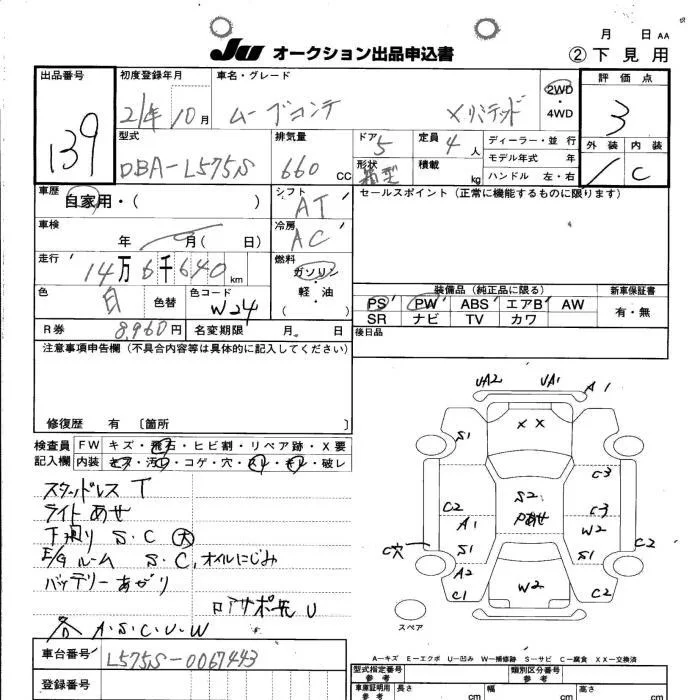 月 日 AA
JU オークション出品申込書 ②下見用
出品番号 初度登録年月 車名・グレード 2WD・4WD 評価点
139 21年10月 ムーブコンテ Xリミテッド 3
型式 排気量 ドア 5 定員 4人 ディーラー・並行 外装 内装
DBA-L575S 660cc 形状 箱型 積載 kg モデル年式 年 C
ハンドル 左・右
車歴 自家用・( ) シフト AT セールスポイント(正常に機能するものに限ります)
車検 年 月( 日) 冷房 AC
走行 14万6千640km 燃料 ガソリン・軽油 ( )
色 白 色替 色コード W24 装備品(純正品に限る) 新車保証書
PS PW ABS エアB AW 有・無
SR ナビ TV カワ
R券 8,960円 名変期限 月 日 後日品
注意事項申告欄(不具合内容等は具体的に記入してください)
修復歴 有 〔箇所 〕
検査員記入欄 FW キズ・飛石・ヒビ割・リペア跡・X要
内装 キズ・汚れ・コゲ・穴・スレ・キレ・破レ
スタッドレスT
ライトあせ
下廻り S・C 大
E/Gルーム S・C,オイルにじみ
バッテリーあがり
ロアサポ先U
各A・S・C・U・W
UA2 UA1 A1
XX
S1 C3
S2
C2 Pあせ C3
A1 W2
C穴 S1 S1 C2
A2 W2
C1 C2
スペア
A-キズ E-エクボ U-凹み W-補修跡 S-サビ C-腐食 XX-交換済
車台番号 L575S-0067443
登録番号
型式指定番号 参考 類別区分番号 参考
車庫証明用 参考 長さ cm 幅 cm 高さ cm